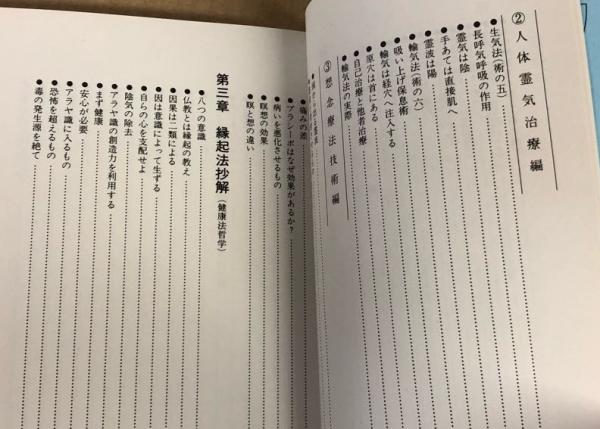 ②人体霊気治療編
●生気法(術の五)
●長呼気呼吸の作用
●霊気は陰
●手あては直接肌へ
●霊波は陽
●輸気法(術の六)
●吸い上げ保息術
●輸気は経穴へ注入する
●原穴は首にある
●自己治療と他者治療
●輸気法の実際
③想念療法技術編
●痛みの差
●プラシーボはなぜ効果があるか?
●病いを悪化させるもの
●瞑想の効果
●瞑と想の違い
第三章 縁起法抄解(健康法哲学)
●八つの意識
●仏教とは縁起の教え
●因果は二類による
●因は意識によって生ずる
●自らの心を支配せよ
●陰気の除去
●アラヤ識の創造力を利用する
●まず健康
●安心が必要
●アラヤ識に入るもの
●恐怖を超えるもの
●毒の発生源を絶て